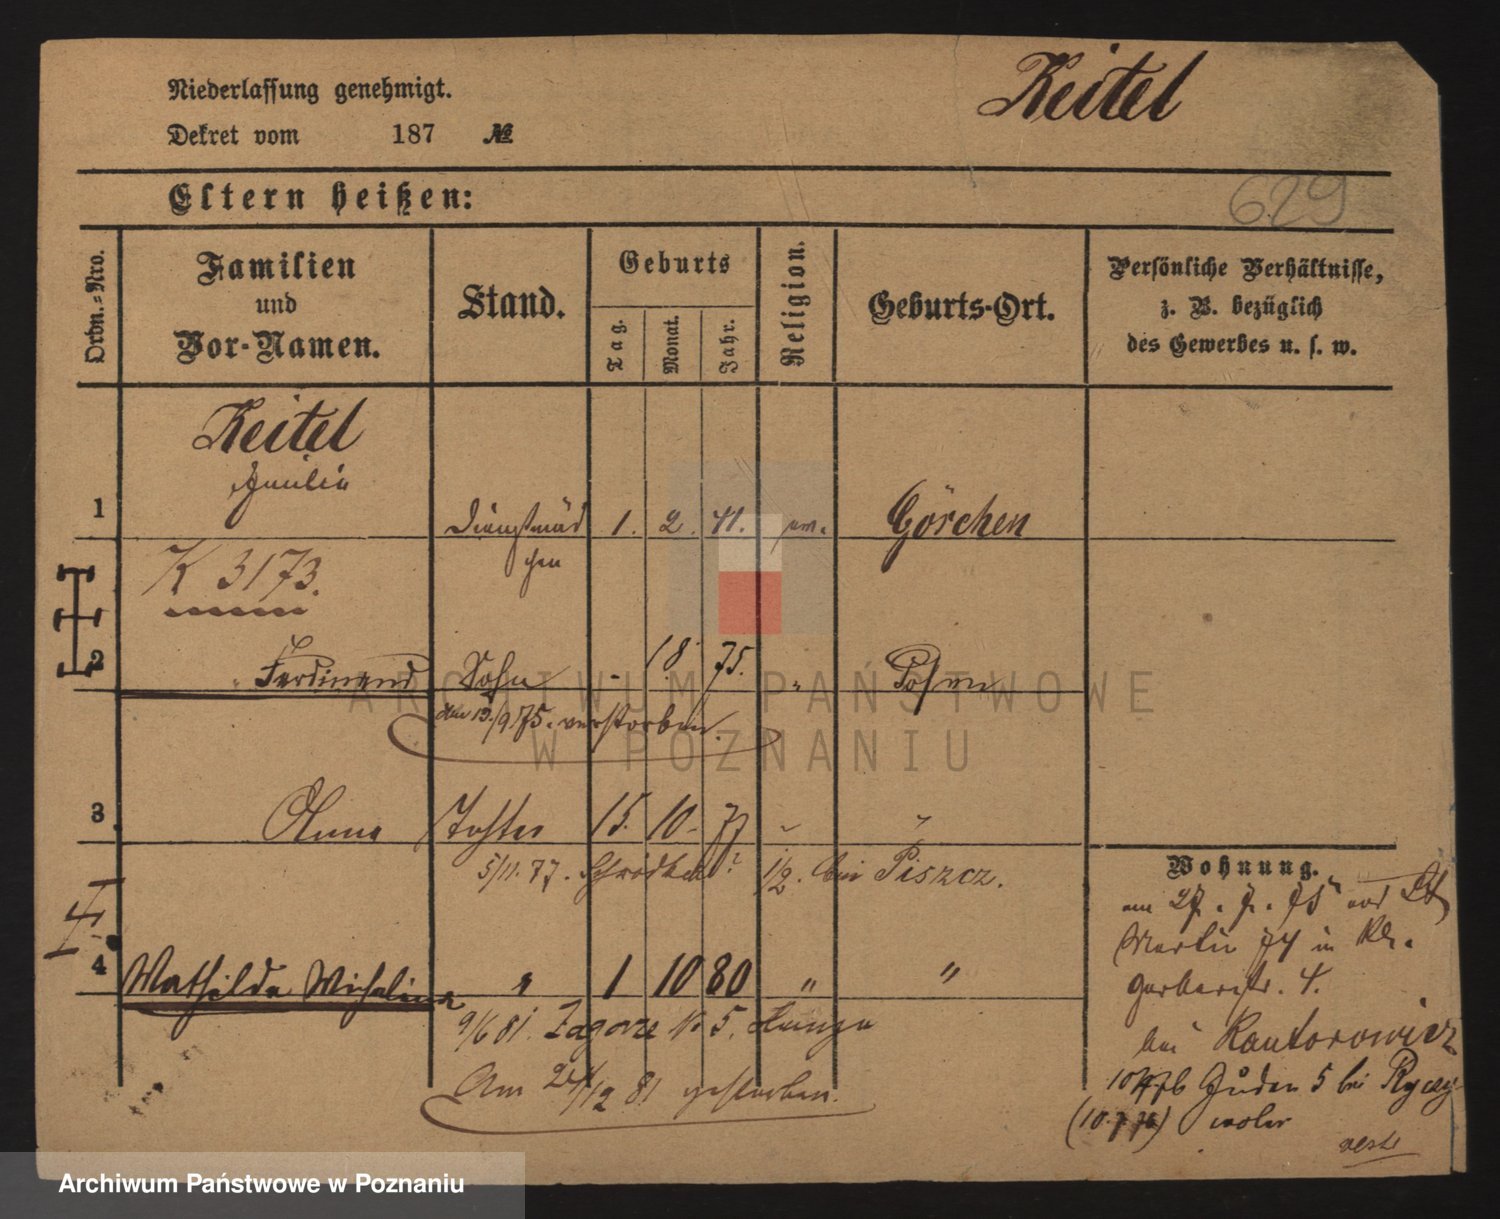 Keitel
Niederlassung genehmigt.
Dekret vom 187 №
629
Eltern heißen:
Ordn.=Nro.
Familien
und
Vor-Namen.
Stand.
Geburts
Tag.
Monat.
Jahr.
Religion.
Geburts-Ort.
Persönliche Verhältnisse,
z. B. bezüglich
des Gewerbes u. s. w.
Keitel
1 Dienstmäd 1. 2. 41. ev. Görchen
chen
K 3173.
2 Ferdinand Sohn - 18. 75. " Posen
den 13/9 75. verstorben.
3 Anna Tochter 15. 10. 77 " "
5/11. 77. Schrodka 1/2. bei Piszcz.
4 Mathilda " 1 10 80 " "
9/6 81. Zagorze № 5.
Am 24/12 81 gestorben.
Wohnung.
am 27. 7. 75 von St
Martin 74 in Kl.
Gerberstr. 4.
bei Kantorowicz
Juden 5 bei
(10.7.76)
ARCHIWUM PAŃSTWOWE
W POZNANIU
Archiwum Państwowe w Poznaniu